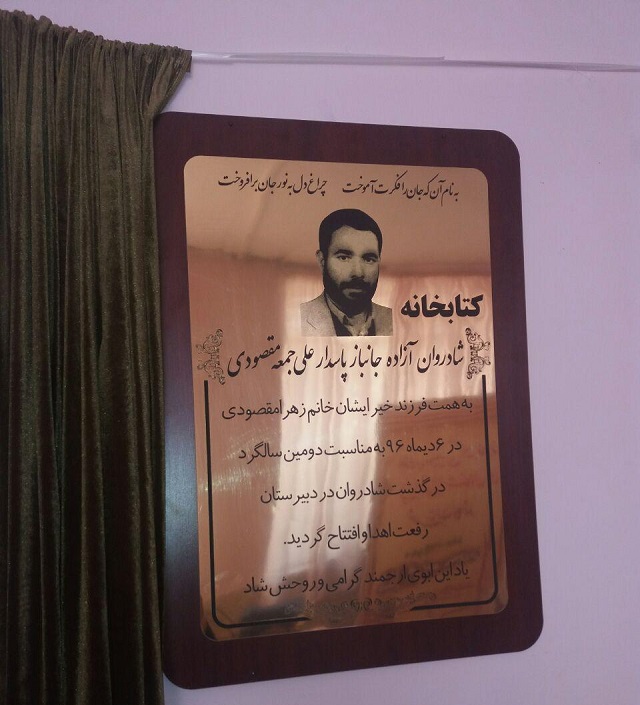 به نام آن که جان را فکرت آموخت چراغ دل به نور جان برافروخت
کتابخانه
شادروان آزاده جانباز پاسدار علی جمعه مقصودی
به همت فرزند خیر ایشان خانم زهرا مقصودی
در ۶ دیماه ۹۶ به مناسبت دومین سالگرد
درگذشت شادروان در دبیرستان
رفعت اهدا و افتتاح گردید.
یاد این ابوی ارجمند گرامی و روحش شاد